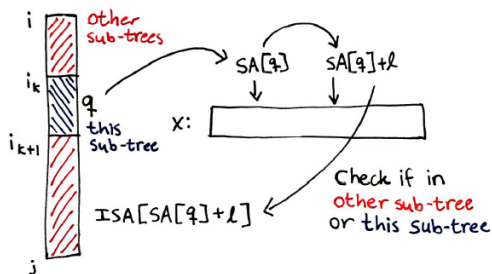 i
other
sub-trees
i_k
q
this
sub-tree
i_{k+1}
j
SA[q]
SA[q]+l
x:
ISA[SA[q]+l]
Check if in
other sub-tree
or this sub-tree